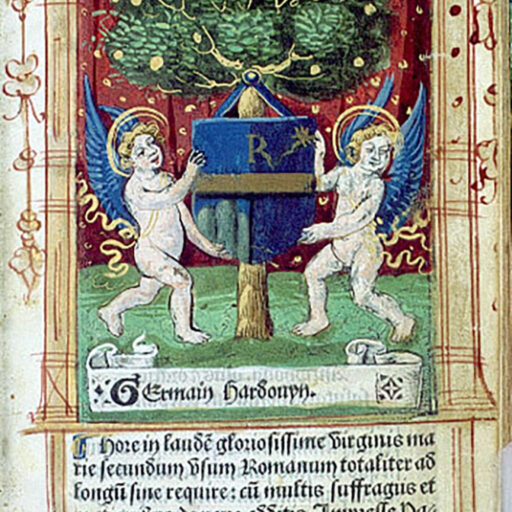 R
Germain hardouyn.
Hore in laudē gloriosissime virginis ma
rie secundum vsum Romanum totaliter ad
longū sine require: cū multis suffragiis et